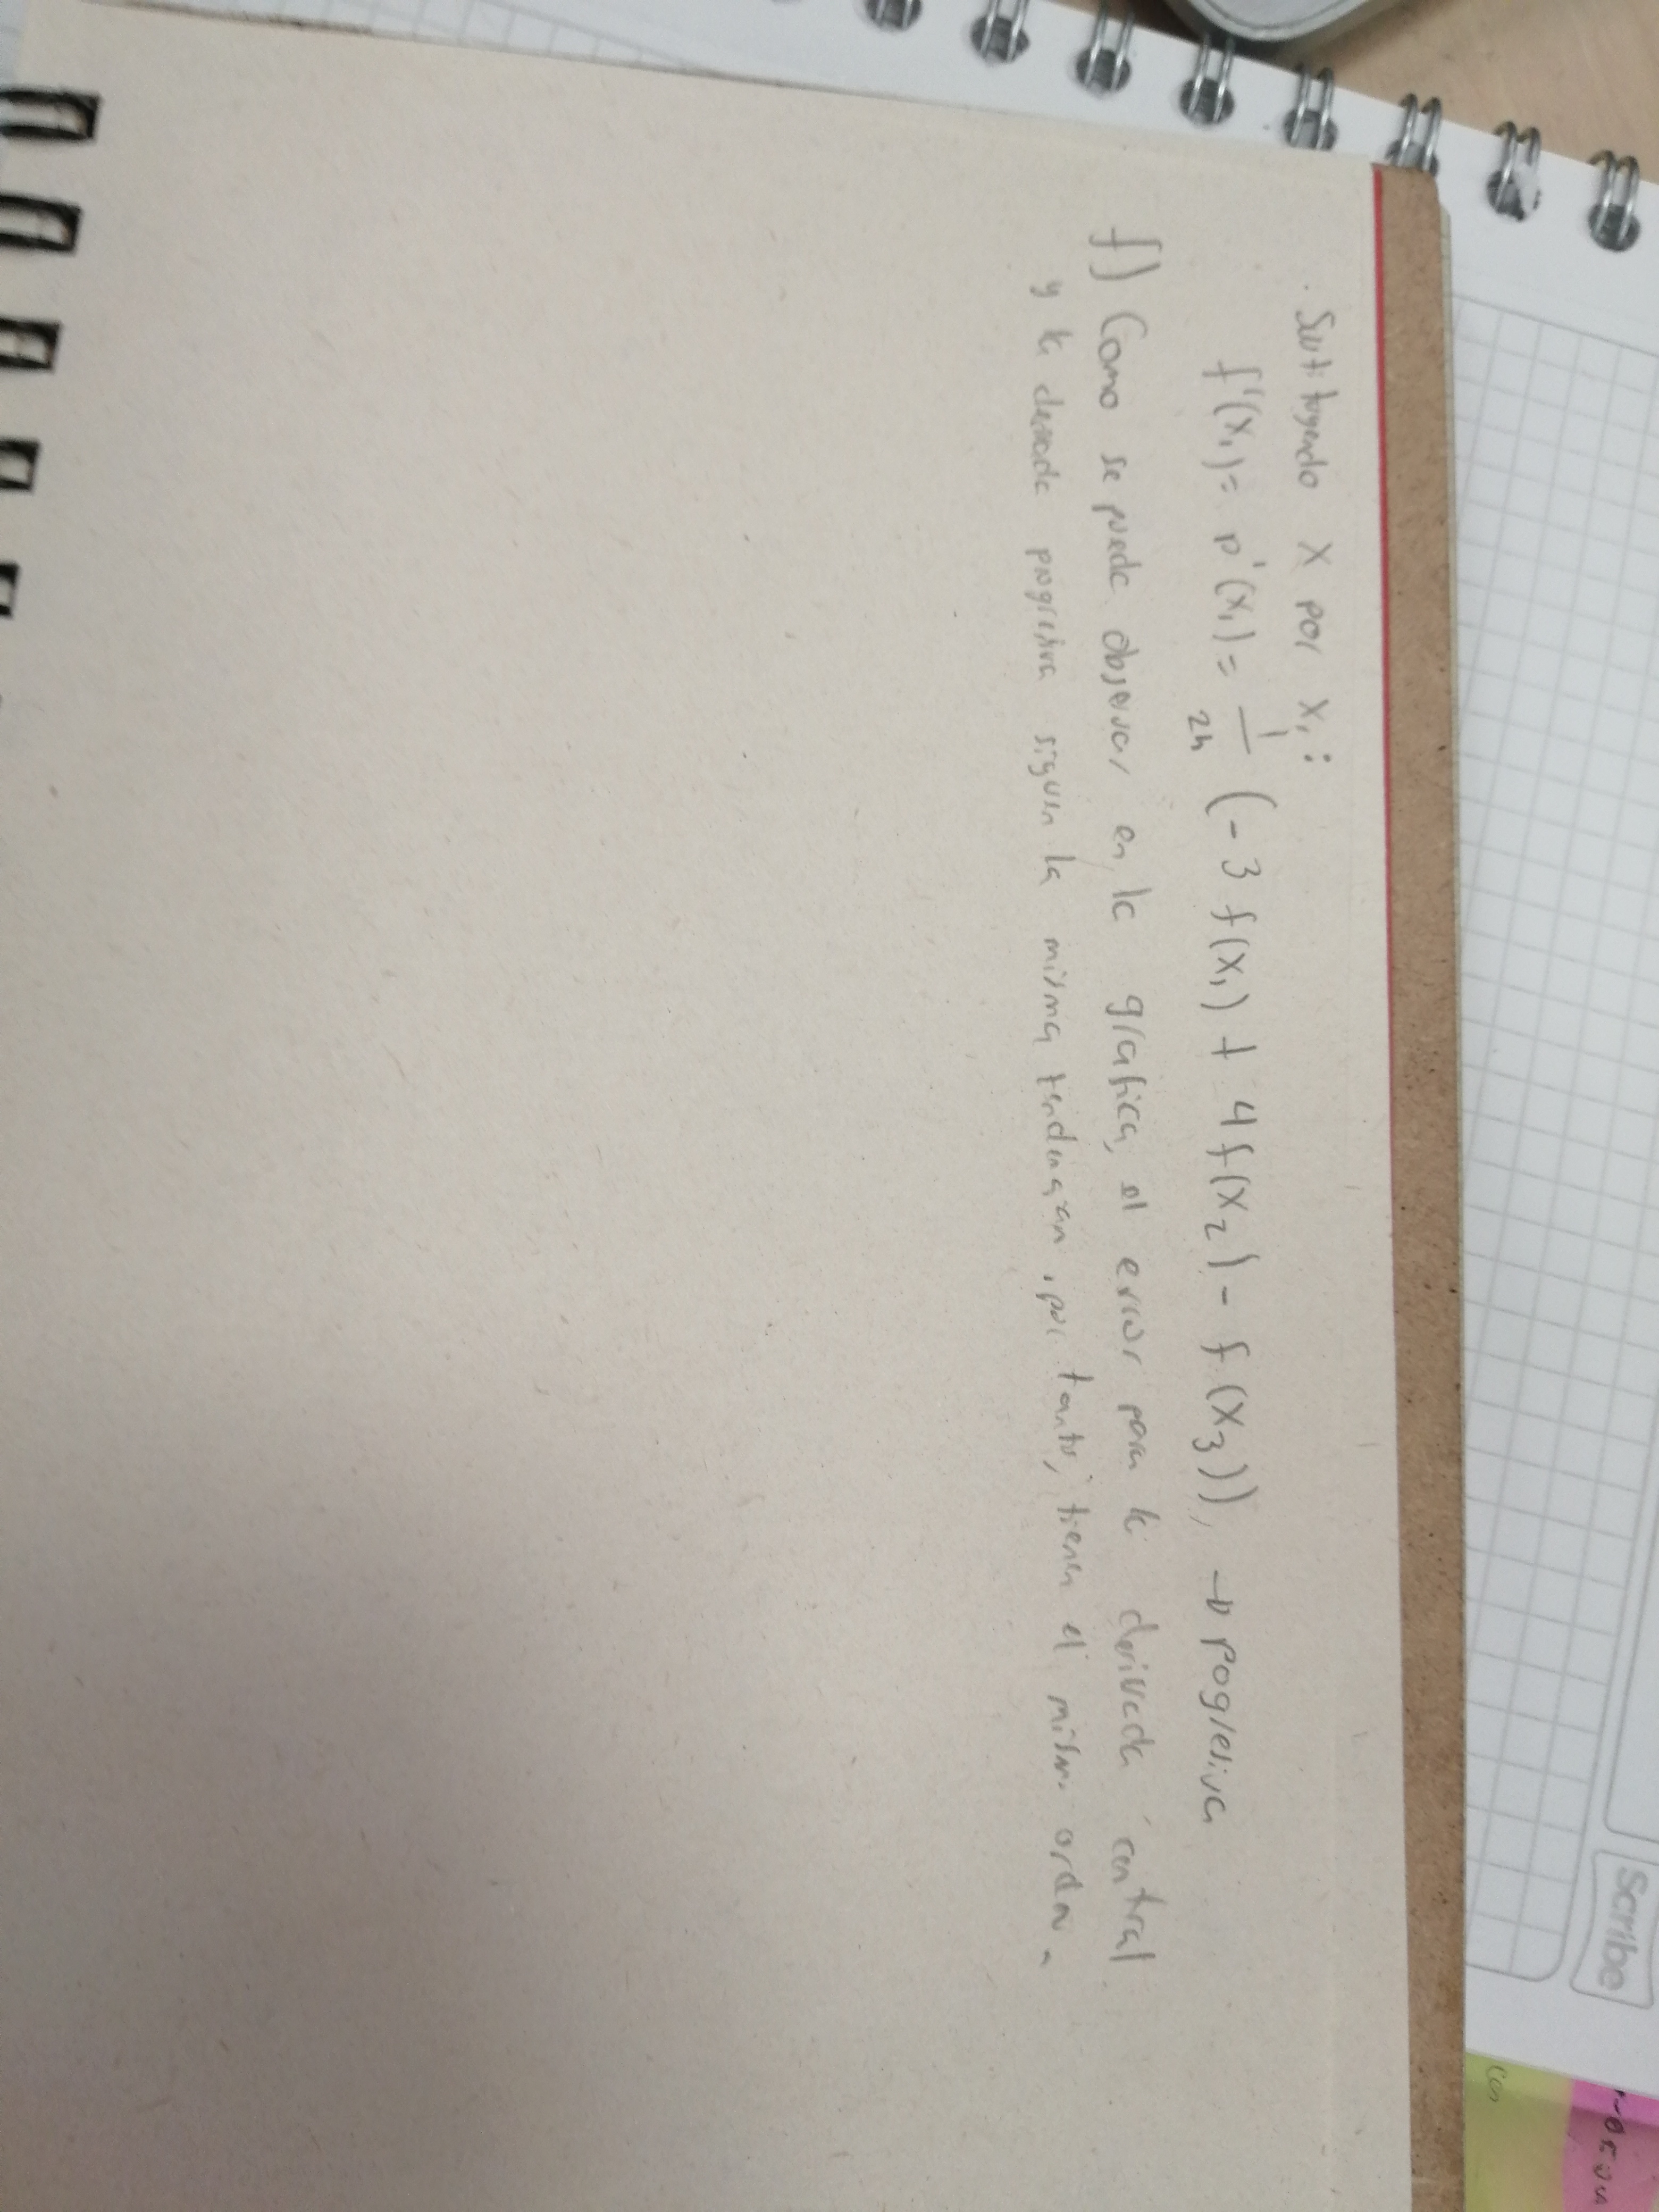 Scribe
ces
. Sustituyendo X por x₁:
f'(x₁) = p'(x₁) = 1/2h (-3 f(x₁) + 4f(x₂) - f(x₃)), → pogresiva
f) Como se puede observar en la grafica, el error para la derivada central
y la derivada progresiva siguen la misma tendencian, por tanto, tienen el mismo orden.